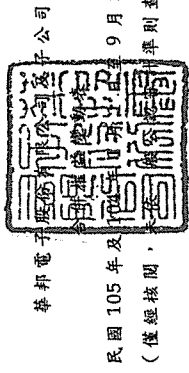 華邦電子股份有限公司及子公司
合併權益變動表
民國 105 年及 104 年 1 月 1 日至 9 月
(僅經核閱,未依一般公認審計準則查